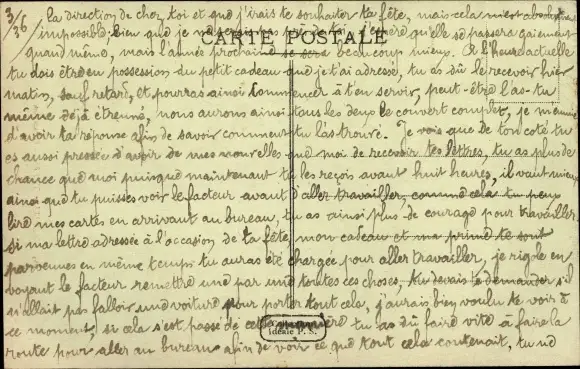 3/36 la direction de chez toi et que j'irais te souhaiter ta fête, mais cela m'est absolument
impossible, bien que je ne serai pas près de toi j'espère qu'elle se passera gaiement
CARTE POSTALE
quand même, mais l'année prochaine ce sera beaucoup mieux. A l'heure actuelle
tu dois être en possession du petit cadeau que je t'ai adressé, tu as dû le recevoir hier
matin, sauf retard, et pourras ainsi commencer à t'en servir, peut-être l'as-tu
même déjà étrenné, nous aurons ainsi tous les deux le couvert complet, je m'ennuie
d'avoir ta réponse afin de savoir comment tu l'as trouvé. Je vois que de ton côté tu
es aussi pressée d'avoir de mes nouvelles que moi de recevoir tes lettres, tu as plus de
chance que moi puisque maintenant tu les reçois avant huit heures, il vaut mieux
ainsi que tu puisses voir le facteur avant d'aller travailler, comme cela tu peux
lire mes cartes en arrivant au bureau, tu as ainsi plus de courage pour travailler
si ma lettre adressée à l'occasion de ta fête, mon cadeau et ma prime te sont
parvenues en même temps tu auras été chargée pour aller travailler, je rigole en
voyant le facteur remettre une par une toutes ces choses, tu devais te demander s'il
n'allait pas falloir une voiture pour porter tout cela, j'aurais bien voulu te voir à
ce moment, si cela s'est passé de cette manière tu as dû faire vite à faire la
Idéale P. S.
route pour aller au bureau afin de voir ce que tout cela contenait, tu